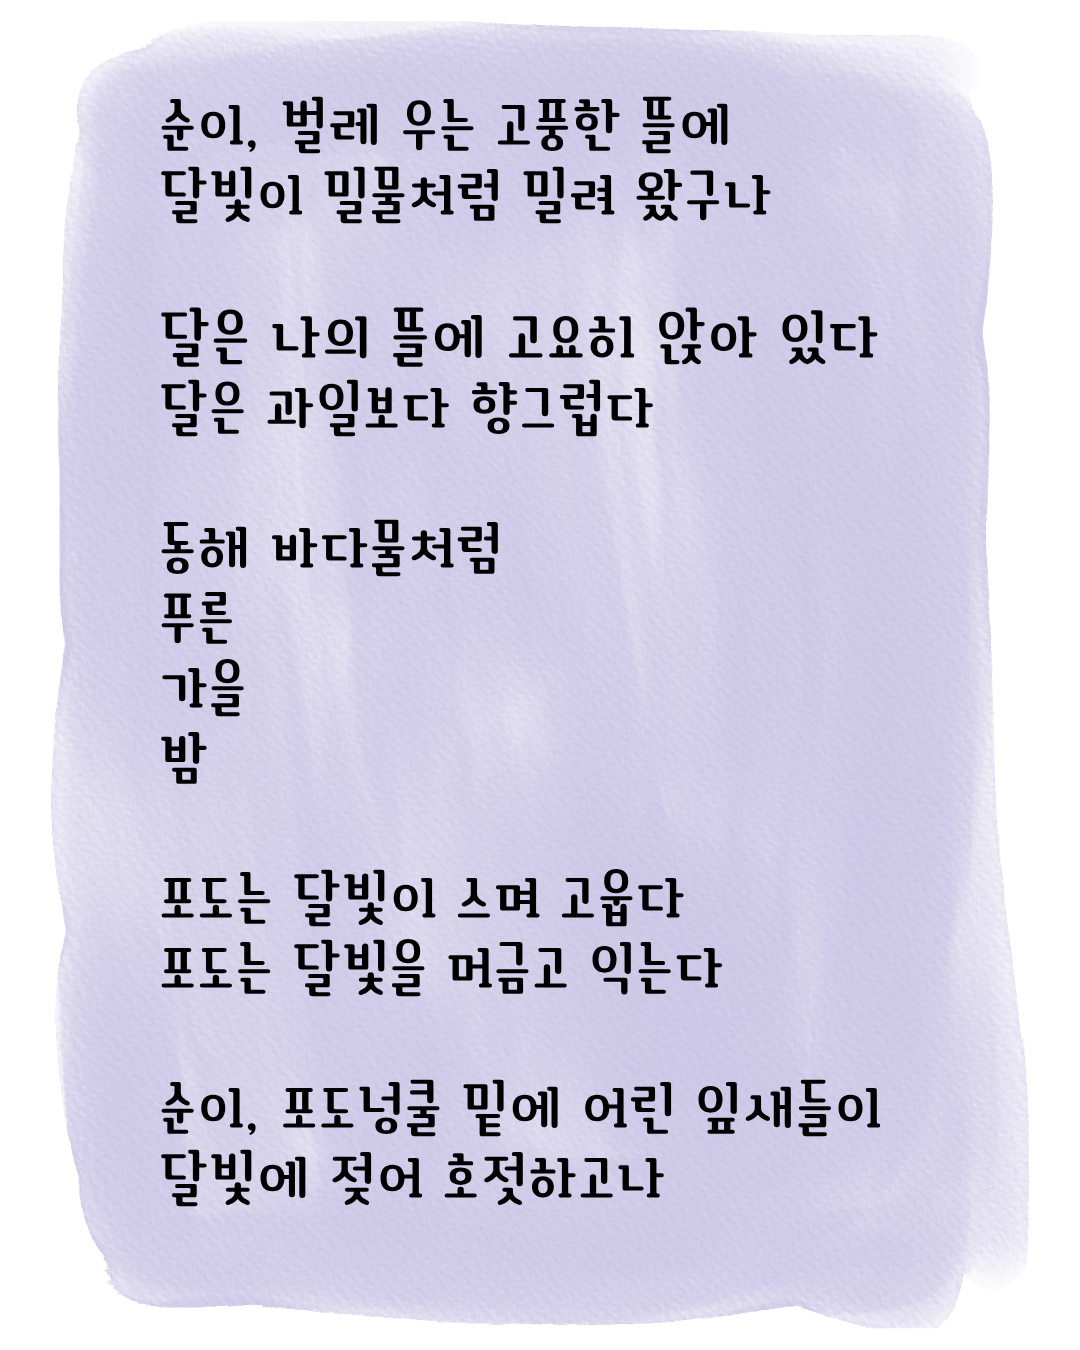 순이, 벌레 우는 고풍한 뜰에
달빛이 밀물처럼 밀려 왔구나
달은 나의 뜰에 고요히 앉아 있다
달은 과일보다 향그럽다
동해 바다물처럼
푸른
가을
밤
포도는 달빛이 스며 고웁다
포도는 달빛을 머금고 익는다
순이, 포도넝쿨 밑에 어린 잎새들이
달빛에 젖어 호젓하고나